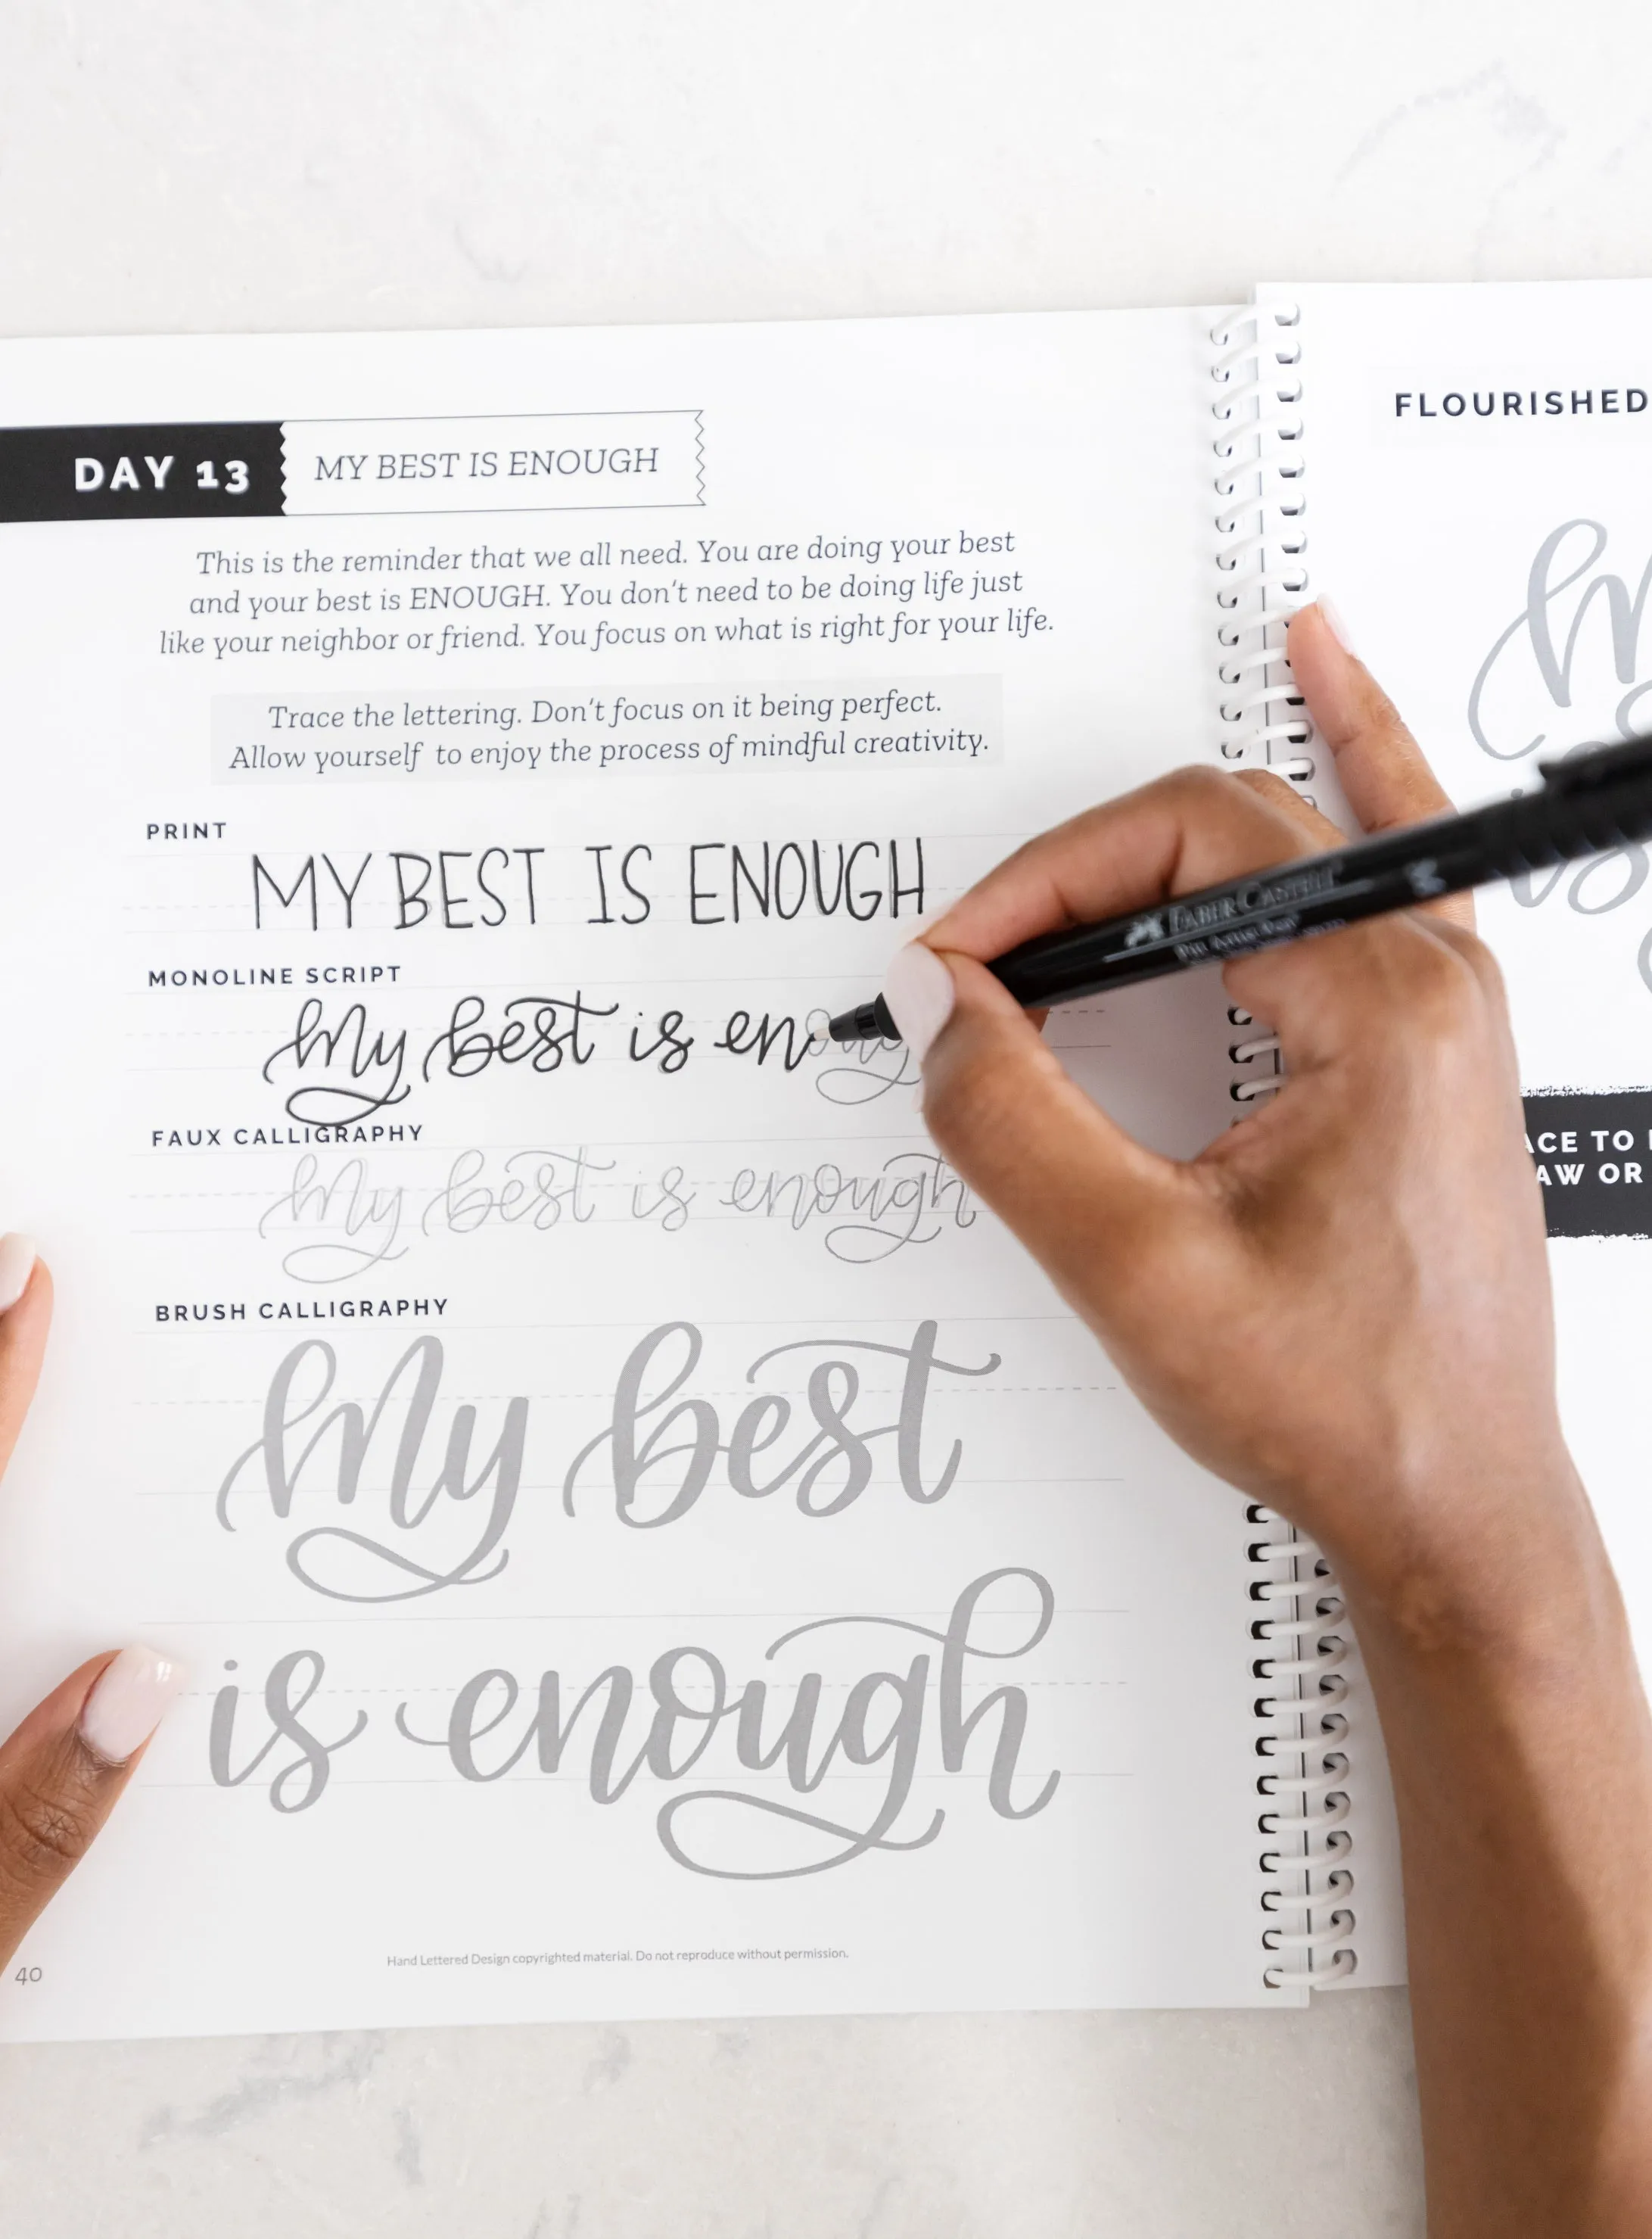 DAY 13 MY BEST IS ENOUGH
This is the reminder that we all need. You are doing your best
and your best is ENOUGH. You don't need to be doing life just
like your neighbor or friend. You focus on what is right for your life.
Trace the lettering. Don't focus on it being perfect.
Allow yourself to enjoy the process of mindful creativity.
PRINT
MY BEST IS ENOUGH
MONOLINE SCRIPT
my best is enoug
FAUX CALLIGRAPHY
my best is enough
BRUSH CALLIGRAPHY
my best
is enough
Hand Lettered Design copyrighted material. Do not reproduce without permission.
40
FLOURISHED
is
ACE TO
AW OR
FABER-CASTELL
Pitt Artist Pen
S